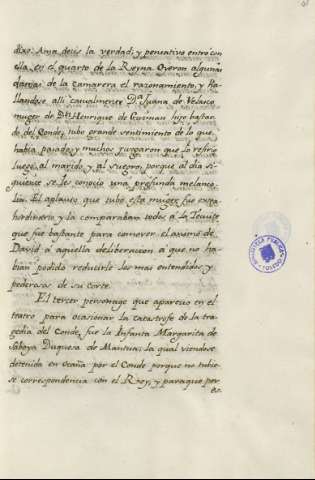 dixo: Ama decis la verdad; y pensativo entró con
ella en el quarto de la Reyna. Oyeron algunas
damas de la camarera el razonamiento, y ha-
llandose alli casualmente D.ª Juana de Velasco
muger de D.n Henrique de Guzman hijo bastar-
do del Conde, tubo grande sentimiento de lo que
había pasado; y muchos juzgaron que lo refirio
luego al marido, y al suegro, porque al dia si-
guiente se les conocio una profunda melanco-
lia. El aplauso que tubo esta muger fue extra-
hordinario y la comparaban todos á la Tecuite
que fue bastante para comover el animo de
David á aquella deliberacion á que no ha-
bian podido reducirle los mas entendidos, y
poderosos de su corte.
El tercer personage que aparecio en el
teatro para ocasionar la catastrofe de la tra-
gedia del Conde, fue la Infanta Margarita de
Saboya Duquesa de Mantua; la qual viendose
detenida en Ocaña por el Conde porque no tubie-
se correspondencia con el Rey, y para que per
BIBLIOTECA PUBLICA
TOLEDO